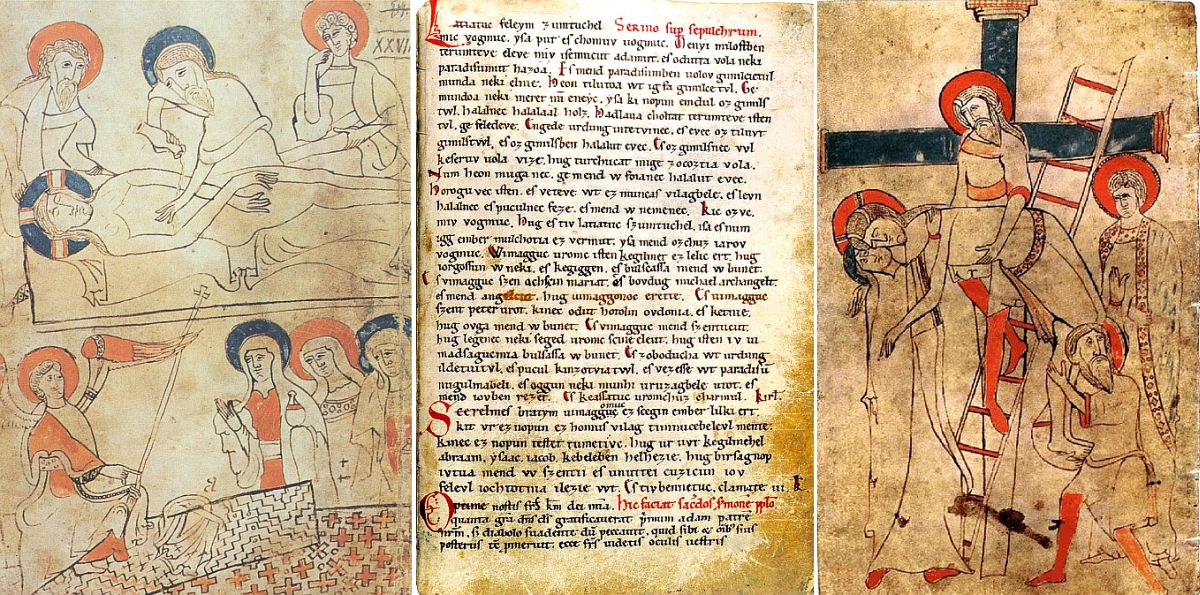 XXVIII
Latiatuc feleym zumtuchel Sermo sup sepulchrum.
mic vogmuc. ysa pur es chomuv uogmuc. Menyi milostben
terumteve eleve miv isemucut adamut. es odutta vola neki
paradisumut hazoa. Es mend paradisumben uolov gimilcictul
munda neki elnie. Heon tilutoa wt ig fa gimilcetvl. Ge
mundoa neki meret nū eneyc. ysa ki nopun emdul oz gimils
twl. halalnec halalaal holz. Hadlaua choltat terumteve isten
tvl. ge feledeve. Engede urdung intetvinec. es evec oz tiluvt
gimilstwl. es oz gimilsben halalut evec. Es oz gimilsnec vvl
keseruv uola vize. hug turchucat mige zocoztia vola.
Num heon muga nec. ge mend w foianec halalut evec.
Horogu vec isten. es veteve wt ez muncas vilagbele. es levn
halalnec es puculnec feze. es mend w nemenec. Kic ozvc.
miv vogmuc. Hug es tiv latiatuc szumtuchel. isa es num
igg ember mulchotia ez vermut. ysa mend ozchuz iarov
vogmuc. Wimagguc uromc isten kegilmet ez lelic ert. hug
iorgossun w neki. es kegiggen. es bulsassa mend w bunet.
Es vimagguc szen achscin mariat. es bovdug michael archangelt.
es mend angelcut. hug uimaggonoc erette. Es uimagguc
szent peter urot. kinec odut hotolm ovdonia. es ketnie.
hug ovga mend w bunet. Es vimagguc mend szentucut.
hug legenec neki seged uromc scine eleut. hug isten iv ui
madsagucmia bulsassa w bunet. Es zoboducha wt urdung
ildetuitvl. es pucul kinzotviatwl. es vezesse wt paradisu
nugulmabeli. es oggun neki munhi uruzagbele utot. es
mend iovben rezet. Es keassatuc uromchuz charmul. Kirl.
Scerelmes bratym uimagguc omuc ez scegin ember lilki ert.
Kit vr ez nopun ez homus vilag timnucebelevl mente.
kinec ez nopun testet tumetivc. hug ur uvt kegilmehel
abraam. ysaac. iacob. kebeleben helhezie. hug birsagnop
ivtva mend w szentii es unuttei cuzicun iov
felevl iochtotnia ilezie wt. Es tiv bennetuc. clamate iii. k
Optime nostis frs km dei mia. Hic faciat sacdos smonē pplo
quanta gra dns ds gratificauerat primum adam patrē
nrm. si diabolo suadente dum peccaut. quid sibi et omib suis
posteris tē pmeruit. ecce frs videtis oculis vestris